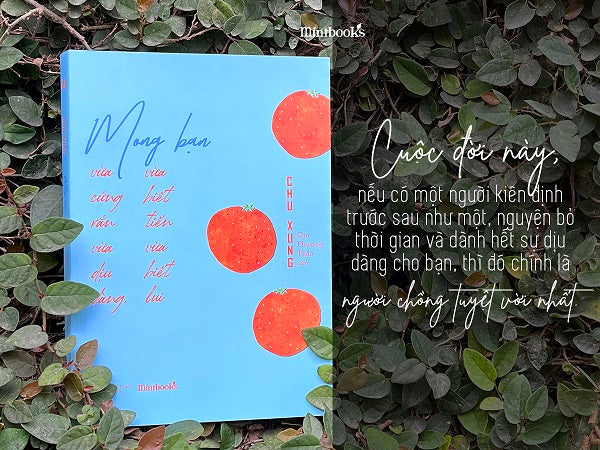 Mintbooks
Mong bạn
vừa vừa
cứng biết
rắn tiến
vừa vừa
dịu biết
dàng, lui
CHU XUNG
Cao Phương
Thảo dịch
Mintbooks
Cuộc đời này,
nếu có một người kiên định
trước sau như một, nguyện bỏ
thời gian và dành hết sự dịu
dàng cho bạn, thì đó chính là
người chồng tuyệt vời nhất.